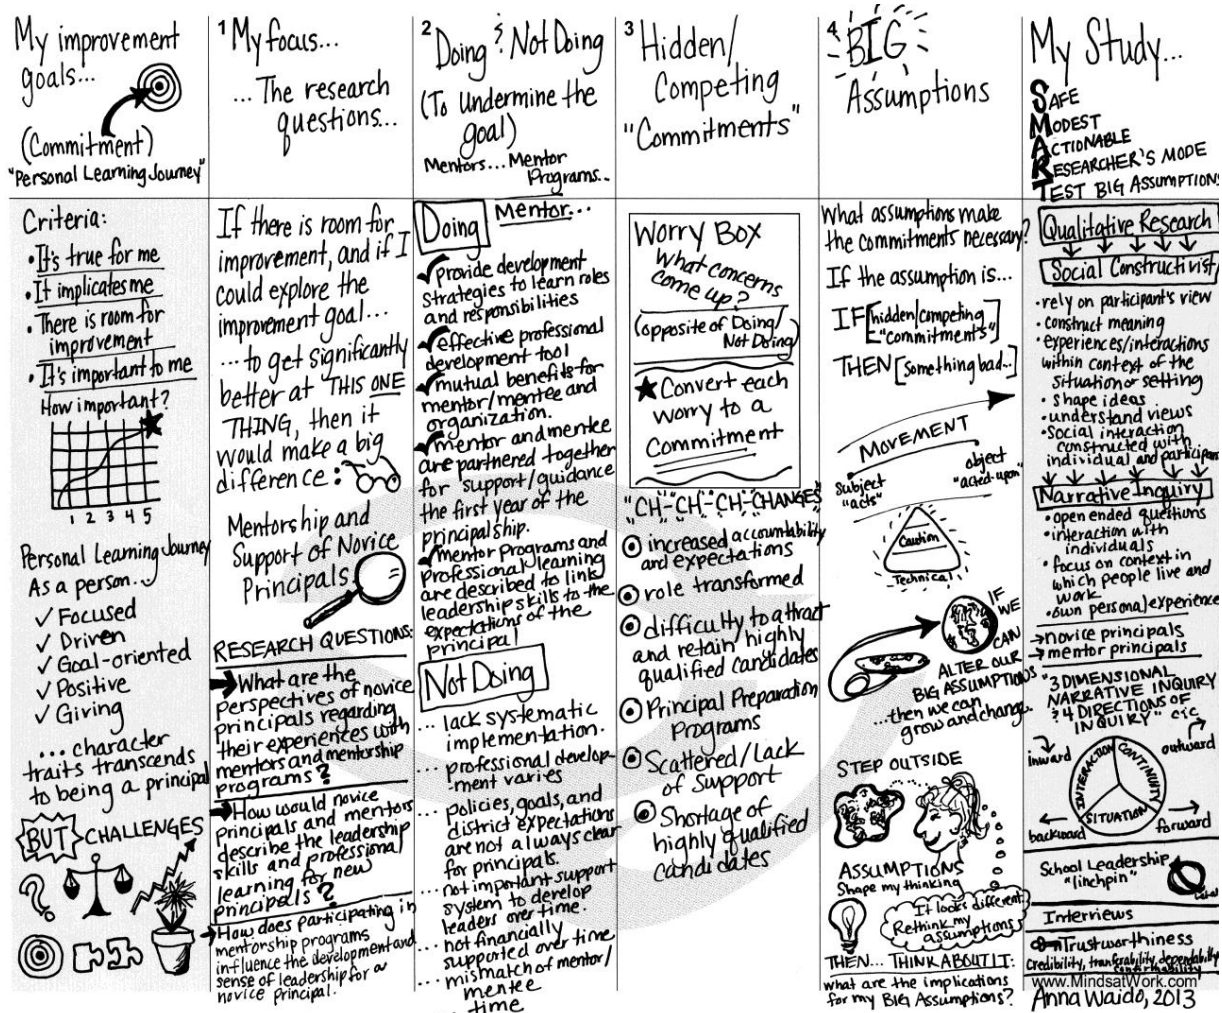 My improvement
goals...
(Commitment)
"Personal Learning Journey"
Criteria:
• It's true for me
• It implicates me
• There is room for
improvement
• It's important to me
How important?
1 2 3 4 5
Personal Learning Journey
As a person...
✓ Focused
✓ Driven
✓ Goal-oriented
✓ Positive
✓ Giving
... character
traits transcends
to being a principal
BUT CHALLENGES
?
1 My focus...
... The research
questions...
If there is room for
improvement, and if I
could explore the
improvement goal...
... to get significantly
better at THIS ONE
THING, then it
would make a big
difference:
Mentorship and
Support of Novice
Principals
RESEARCH QUESTIONS:
What are the
perspectives of novice
principals regarding
their experiences with
mentors and mentorship
programs?
How would novice
principals and mentors
describe the leadership
skills and professional
learning for new
principals?
How does participating in
mentorship programs
influence the development and
sense of leadership for a
novice principal.
2 Doing & Not Doing
(To undermine the
goal)
Mentors... Mentor
Programs...
Doing Mentor...
✓ provide development
strategies to learn roles
and responsibilities
✓ effective professional
development tool
✓ mutual benefits for
mentor/mentee and
organization.
✓ mentor and mentee
are partnered together
for support/guidance
the first year of the
principalship.
✓ mentor programs and
professional learning
are described to link
leadership skills to the
expectations of the
principal
Not Doing
... lack systematic
implementation.
... professional develop-
ment varies
... policies, goals, and
district expectations
are not always clear
for principals.
... not important support
system to develop
leaders over time.
... not financially
supported over time
... mismatch of mentor/
mentee
... time
3 Hidden/
Competing
"Commitments"
Worry Box
What concerns
come up?
(opposite of Doing/
Not Doing)
★ Convert each
worry to a
Commitment
"CH-CH-CH-CHANGES"
increased accountability
and expectations
role transformed
difficulty to attract
and retain highly
qualified candidates
Principal Preparation
Programs
Scattered/Lack
of Support
Shortage of
highly qualified
candidates
4 BIG
Assumptions
What assumptions make
the commitments necessary?
If the assumption is...
IF [hidden/competing
"commitments"]
THEN [something bad...]
MOVEMENT
Subject
"acts"
object
"acted upon"
Caution
Technical
IF
WE
CAN
ALTER OUR
BIG ASSUMPTIONS
...then we can
grow and change.
STEP OUTSIDE
ASSUMPTIONS
Shape my thinking
It looks different.
Rethink my
assumptions
THEN... THINK ABOUT IT:
what are the implications
for my BIG Assumptions?
My Study...
SAFE
MODEST
ACTIONABLE
RESEARCHER'S MODE
TEST BIG ASSUMPTIONS
Qualitative Research
Social Constructivist/
• rely on participant's view
• construct meaning
• experiences/interactions
within context of the
situation or setting
• shape ideas
• understand views
• Social interaction
constructed with
individual and participant
Narrative Inquiry
• open ended questions
• interaction with
individuals
• focus on context in
which people live and
work
• own personal experience
→ novice principals
→ mentor principals
"3 DIMENSIONAL
NARRATIVE INQUIRY
& 4 DIRECTIONS OF
INQUIRY" C;C
inward
outward
INTERACTION
CONTINUITY
SITUATION
backward
forward
School Leadership
"linchpin"
Interviews
Trustworthiness
Credibility, tranferability, dependability
confirmability
www.MindsatWork.com
Anna Waido, 2013